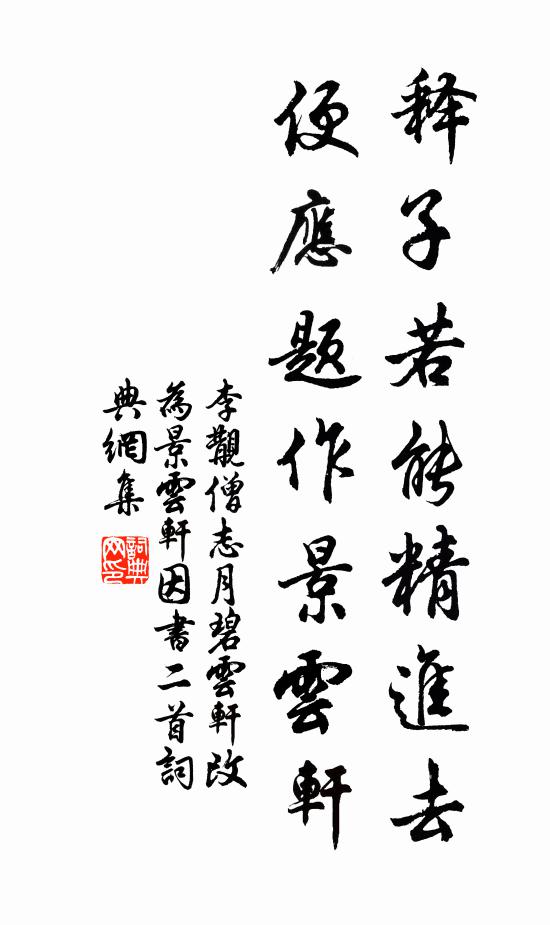 释子若能精進去
便應題作景雲軒
李覯僧志月碧雲軒改
為景雲軒因書二首詞
典網集
詞典網印